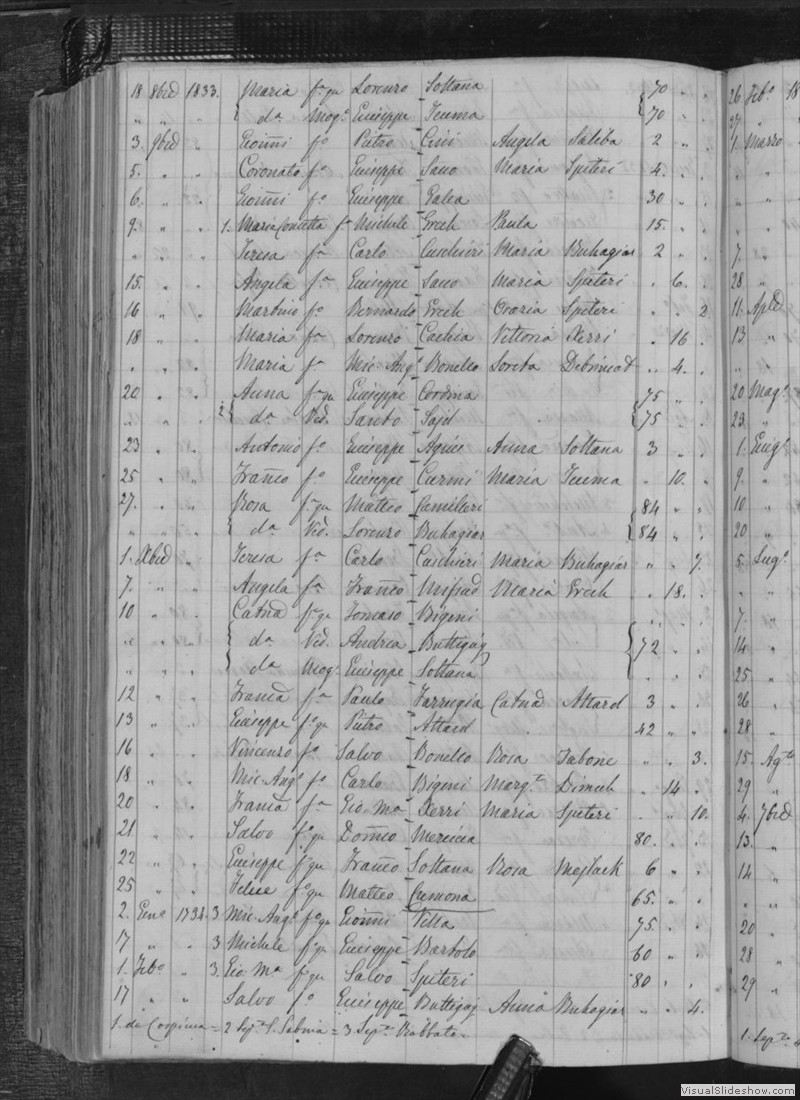 18 8bre 1833. Maria fa qm Lorenzo Soltana 70 " .
" " " da Mogo Giuseppe Zeuma 70 " .
3. 9bre " Gionni fo Pietro Cini Angela Saliba 2 " .
5. " " Coronato fo Giuseppe Sano Maria Spiteri 4. " .
6. " " Gionni fo Giuseppe Galea 30 " .
9. " " 1. Maria Concetta fa Michele Grech Paula 15. " .
" " " Teresa fa Carlo Cuschieri Maria Buhagiar 2 " .
15. " " Angela fa Giuseppe Sano Maria Spiteri . 6. .
16 " " Martino fo Bernardo Grech Orazia Spiteri . . 2
18 " " Maria fa Lorenzo Cachia Vittoria Xerri . 16 .
" " " Maria fa Mic. Ango Bonello Loreta Debrincat . 4. .
20 " " Anna fa qm Giuseppe Cordina 75 " .
" " " 2 da Ved. Santo Sajd 75 " .
23 " " Antonio fo Giuseppe Agius Anna Soltana 3 " .
25 " " Franco fo Giuseppe Curmi Maria Zeuma . 10. .
27. " " Rosa fa qm Matteo Camilleri 84 " .
" " " da Ved. Lorenzo Buhagiar 84 " .
1. Xbre " Teresa fa Carlo Cuschieri Maria Buhagiar " . 7.
7. " " Angela fa Franco Mifsud Maria Grech . 18. .
10 " " Catna fa qm Tomaso Bigeni
" " " da Ved. Andrea Buttigieg 72 " .
" " " da Mog. Giuseppe Soltana
12 " " Franca fa Paulo Farrugia Catna Attard 3 " .
13 " " Giuseppe fo qm Pietro Attard 42 " "
16 " " Vincenzo fo Salvo Bonello Rosa Tabone " . 3.
18 " " Mic. Ango fo Carlo Bigeni Margta Dimech . 14 .
20 " " Franca fa Gio. Ma Xerri Maria Spiteri . . 10.
21 " " Salvo fo qm Domco Mercieca 80. . .
22 " " Giuseppe fo qm Franco Soltana Rosa Mejlack 6 " .
25 " " Felice fo qm Matteo Cremona 65. " .
2. Geno 1734. 3 Mic. Ango fo qm Gionni Vella 75. " .
17 " " 3 Michele fo qm Giuseppe Bartolo 60 " .
1. Febo " 3. Gio. Ma fo qm Salvo Spiteri 80 . .
17 " " Salvo fo Giuseppe Buttigieg Anna Buhagiar " . 4.
1. da Cospicua = 2 Sepa S. Sabina = 3 Sepa Rabbato.
26 Febo 18
27 "
1. Marzo
" "
7. "
28 "
11. Aple
13 "
20 Mago
23 "
1. Giugo
9 "
10 "
20 "
5. Lugo
" "
7. "
14 "
25 "
26 "
28 "
15. Agto
29 "
4. 7bre
13. "
14 "
" "
20 "
28 "
29 "
VisualSlideshow.com